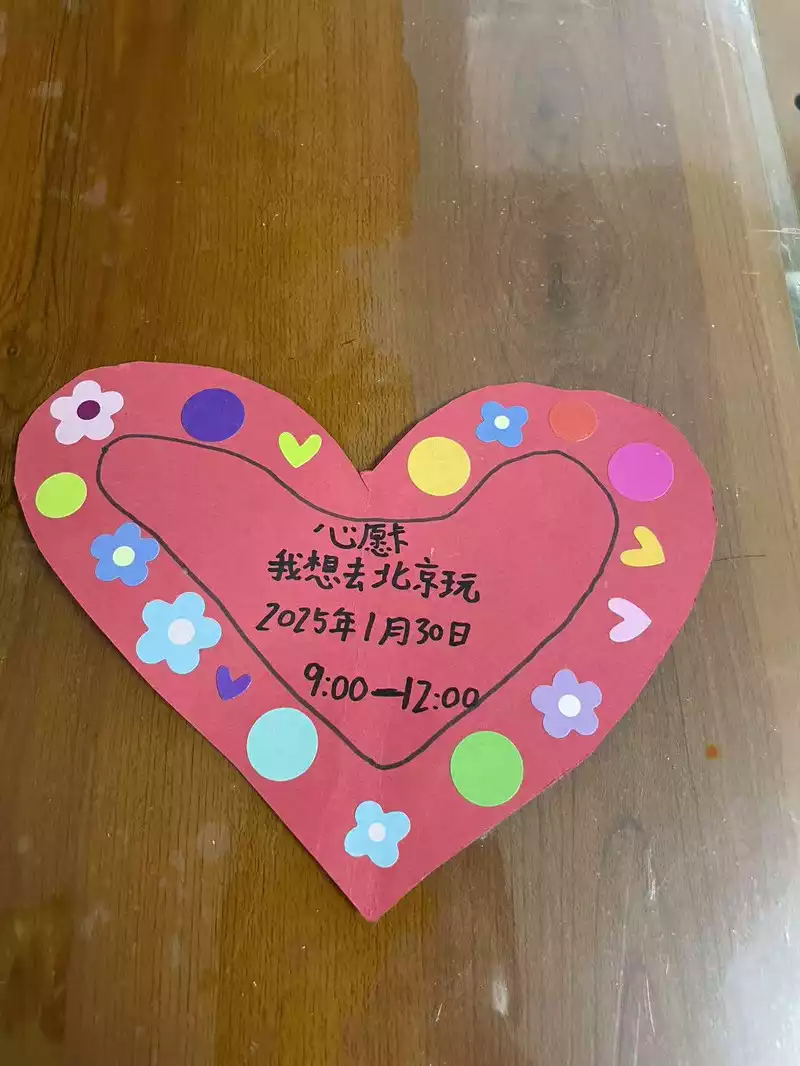 心愿卡
我想去北京玩
2025年1月30日
9:00—12:00